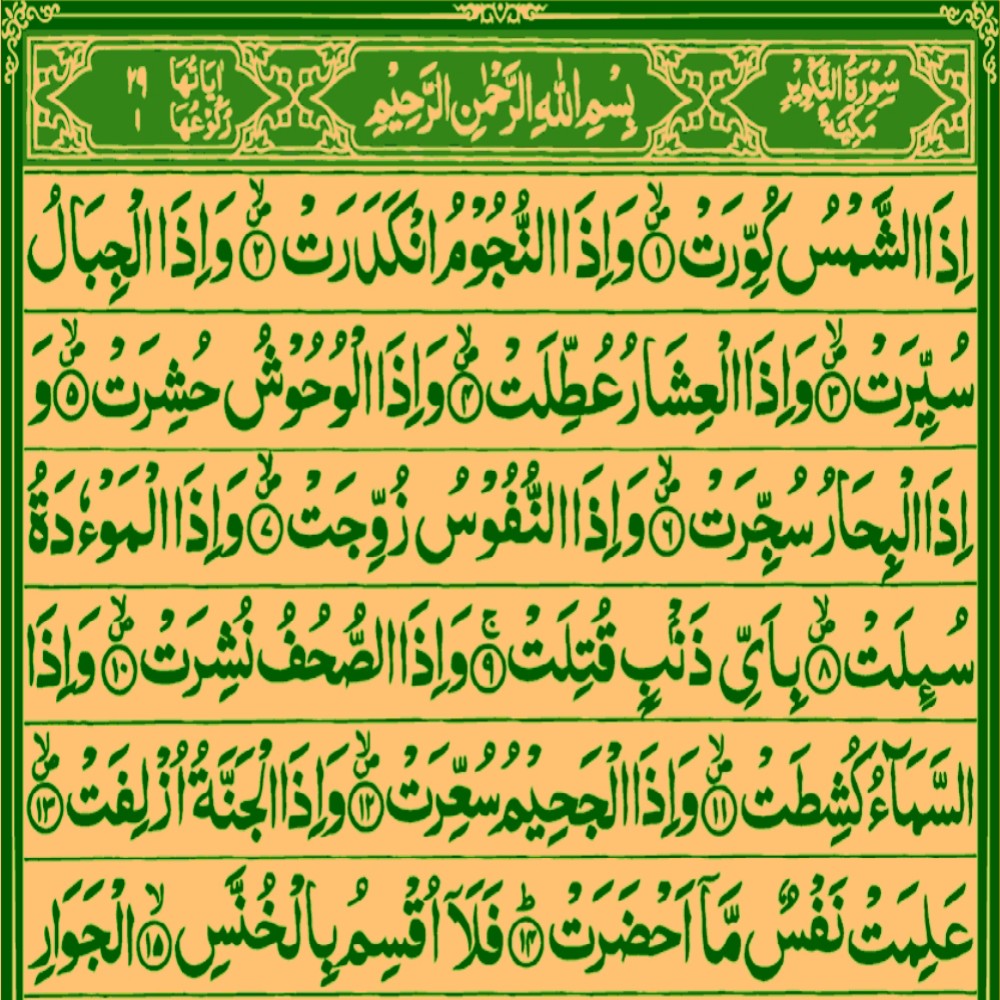 سُوْرَةُ التَّكْوِيْرِ مَكِّيَّةٌ بِسْمِ اللّٰهِ الرَّحْمٰنِ الرَّحِيْمِ اٰيَاتُهَا ٢٩ رُكُوْعُهَا ١
اِذَا الشَّمْسُ كُوِّرَتْ ۪ۙ‏﴿۱﴾ وَاِذَا النُّجُوْمُ انْكَدَرَتْ ۪ۙ‏﴿۲﴾ وَاِذَا الْجِبَالُ
سُيِّرَتْ ۪ۙ‏﴿۳﴾ وَاِذَا الْعِشَارُ عُطِّلَتْ ۪ۙ‏﴿۴﴾ وَاِذَا الْوُحُوْشُ حُشِرَتْ ۪ۙ‏﴿۵﴾ وَ
اِذَا الْبِحَارُ سُجِّرَتْ ۪ۙ‏﴿۶﴾ وَاِذَا النُّفُوْسُ زُوِّجَتْ ۪ۙ‏﴿۷﴾ وَاِذَا الْمَوْءٗدَةُ
سُىِٕلَتْ ۪ۙ‏﴿۸﴾ بِاَىِّ ذَنْۢبٍ قُتِلَتْ ۚ‏﴿۹﴾ وَاِذَا الصُّحُفُ نُشِرَتْ ۪ۙ‏﴿۱۰﴾ وَاِذَا
السَّمَآءُ كُشِطَتْ ۪ۙ‏﴿۱۱﴾ وَاِذَا الْجَحِيْمُ سُعِّرَتْ ۪ۙ‏﴿۱۲﴾ وَاِذَا الْجَنَّةُ اُزْلِفَتْ ۪ۙ‏﴿۱۳﴾
عَلِمَتْ نَفْسٌ مَّاۤ اَحْضَرَتْ ؕ‏﴿۱۴﴾ فَلَاۤ اُقْسِمُ بِالْخُنَّسِ ۙ‏﴿۱۵﴾ الْجَوَارِ